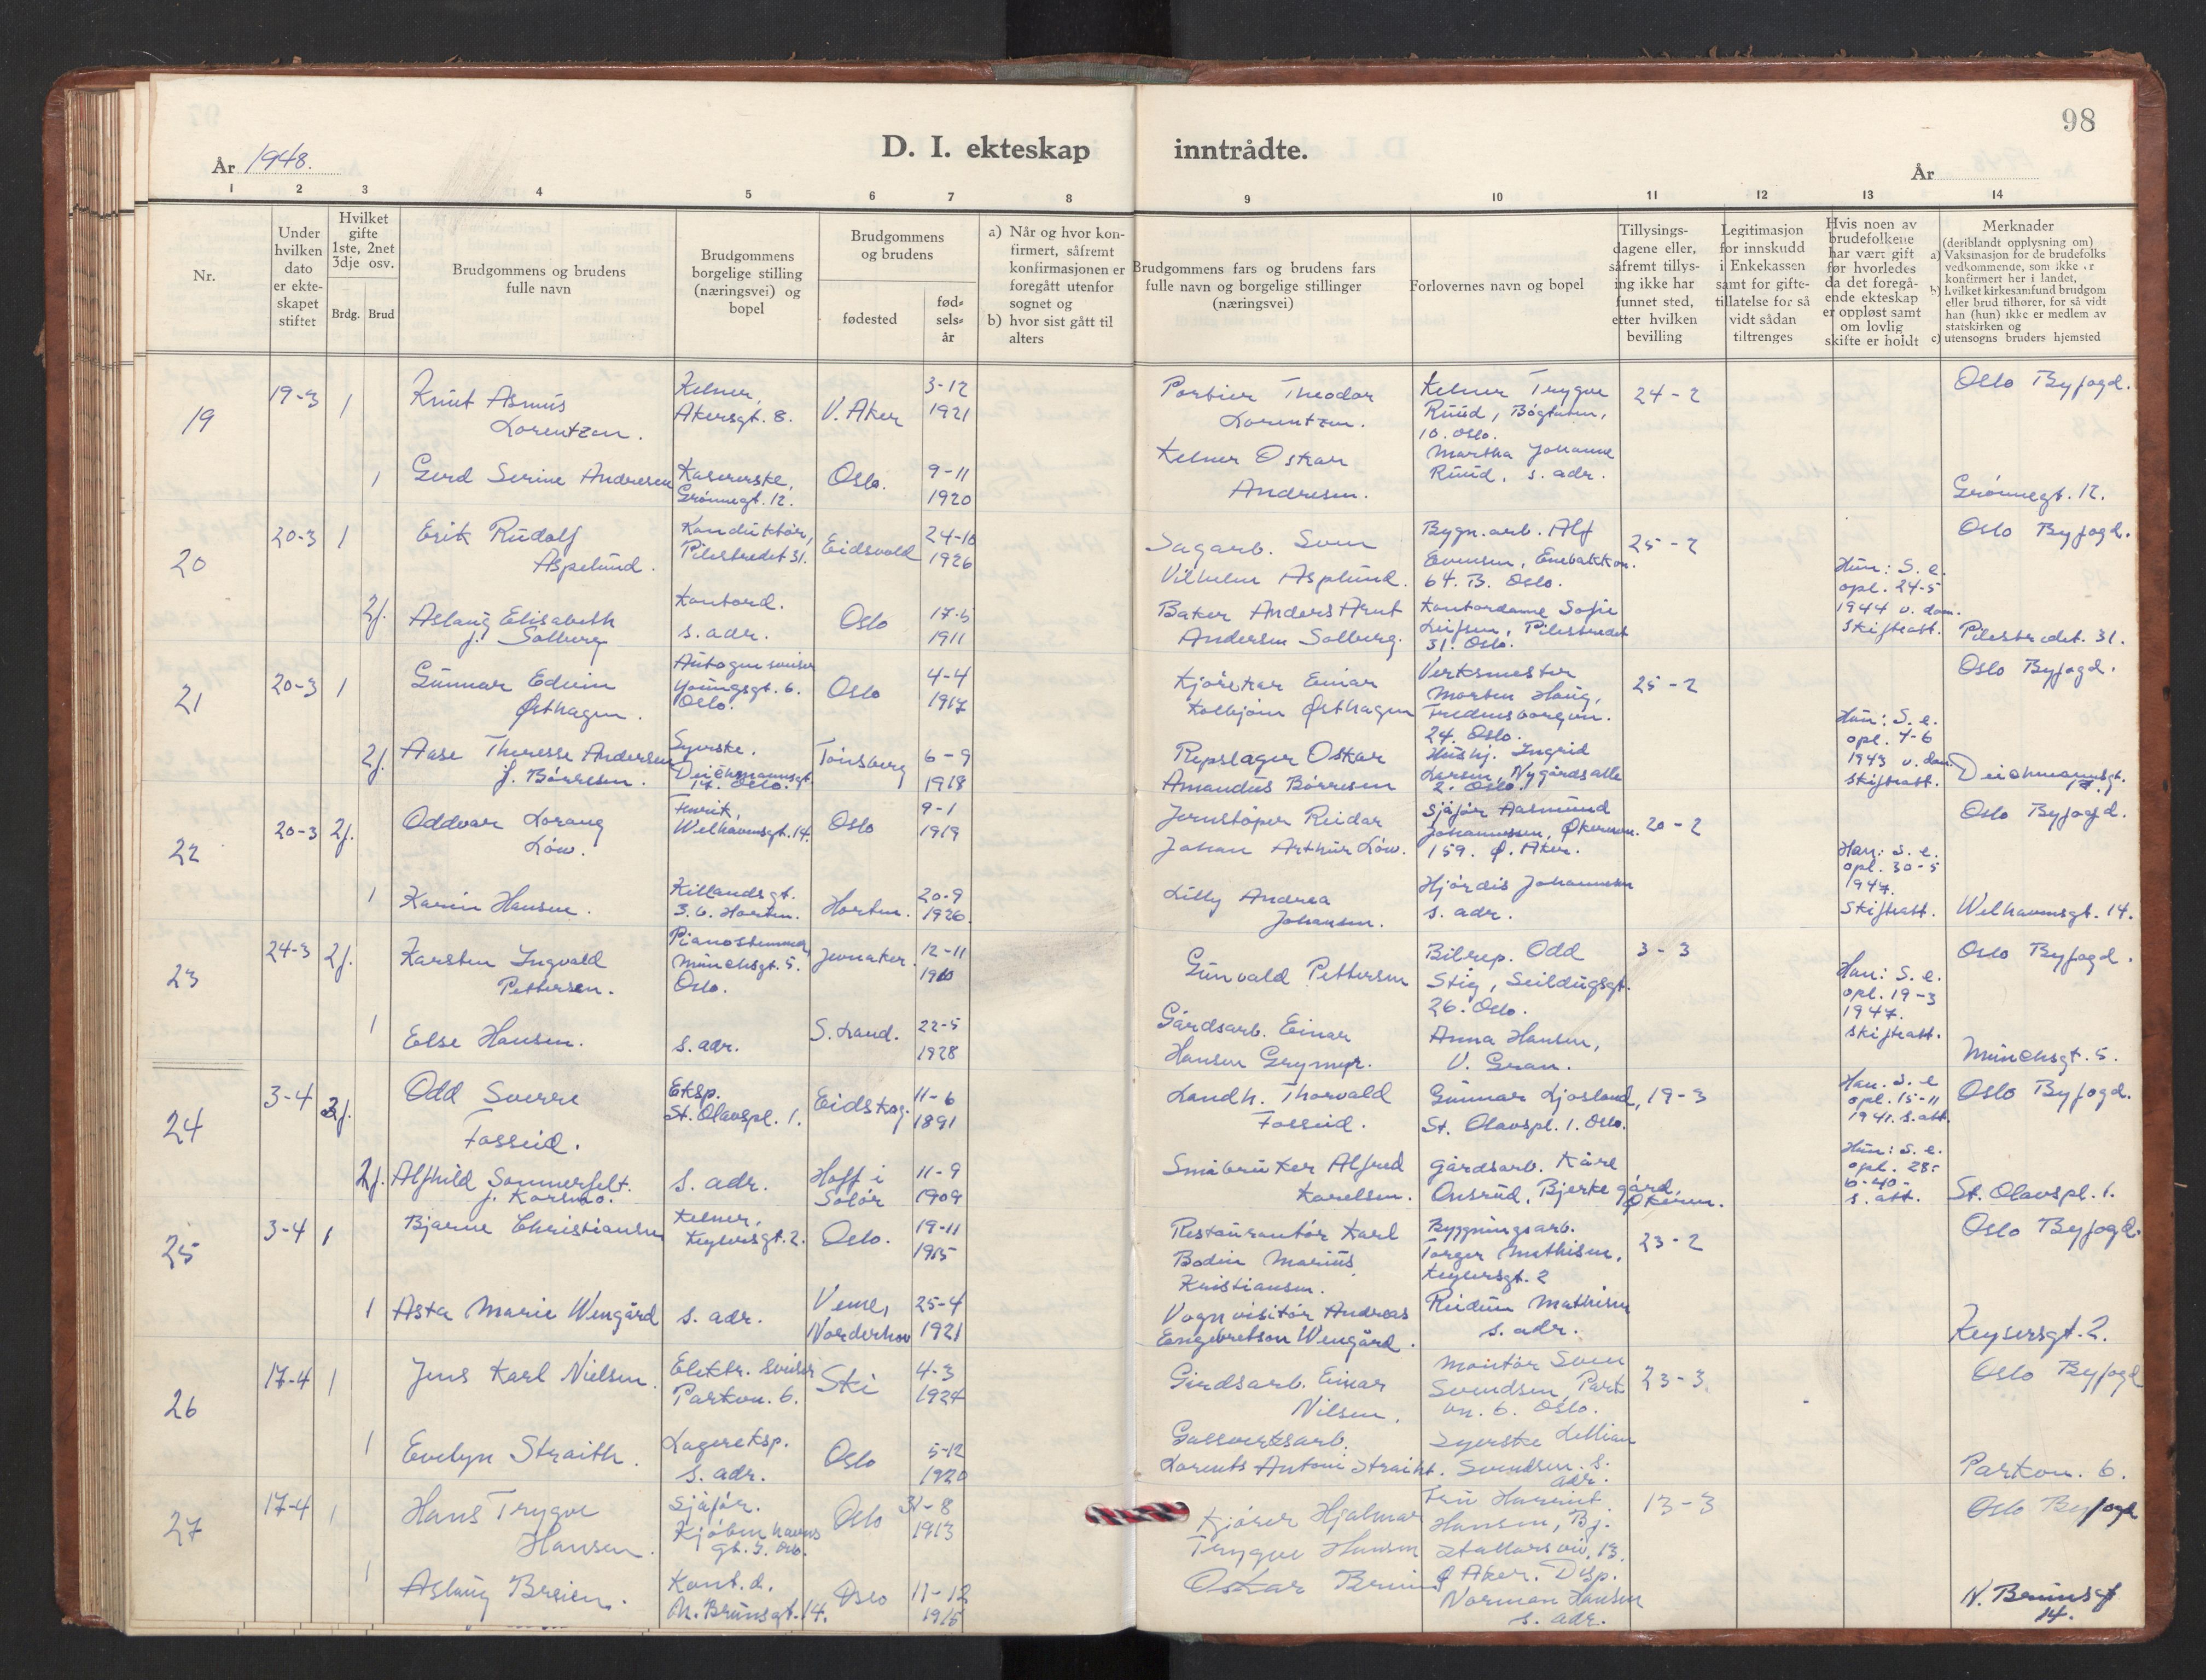 98
D. I. ekteskap inntrådte.
År 1948.
År
1 2 3 4 5 6 7 8 9 10 11 12 13 14
Nr.
Under hvilken dato er ekte-skapet stiftet
Hvilket gifte 1ste, 2net 3dje osv.
Brdg. Brud
Brudgommens og brudens fulle navn
Brudgommens borgelige stilling (næringsvei) og bopel
Brudgommens og brudens
fødested
fød-sels-år
a) Når og hvor kon-firmert, såfremt konfirmasjonen er foregått utenfor sognet og
b) hvor sist gått til alters
Brudgommens fars og brudens fars fulle navn og borgelige stillinger (næringsvei)
Forlovernes navn og bopel
Tillysings-dagene eller, såfremt tillys-ing ikke har funnet sted, etter hvilken bevilling
Legitimasjon for innskudd i Enkekassen samt for gifte-tillatelse for så vidt sådan tiltrenges
Hvis noen av brudefolkene har vært gift før hvorledes da det foregå-ende ekteskap er oppløst samt om lovlig skifte er holdt
Merknader
(deriblandt opplysning om)
a) Vaksinasjon for de brudefolks vedkommende, som ikke er konfirmert her i landet,
b) hvilket kirkesamfund brudgom eller brud tilhører, for så vidt han (hun) ikke er medlem av statskirken og
c) utensogns bruders hjemsted
19
19-3 1 Knut Asmus Lorentzen.
Kelner, Akersgt. 8.
V. Aker 3-12 1921
Portier Theodor Lorentzen.
Kelner Trygve Ruud, 10. Oslo.
24-2
Oslo Byfogd.
1 Gerd Serine Andresen
Kasererske, Grønnegt. 12.
Oslo. 9-11 1920
Kelner Oskar Andresen.
Martha Johanne Ruud, s. adr.
Grønnegt. 12.
20
20-3 1 Erik Rudolf Aspelund.
Konduktør, Pilestredet 31.
Eidsvold 24-10 1926
Sagarb. Sven Vilhelm Asplund.
Bygn.arb. Alf Evensen, Enebakkvn. 64. B. Oslo.
25-2
Oslo Byfogd.
2f. Aslaug Elisabeth f. Solberg
Kontord. s. adr.
Oslo 17-5 1911
Baker Anders Arnt Andersen Solberg.
Kontordame Sofie Leifsen, Pilestredet 31. Oslo.
Hun: S. e. opl. 24-5 1944 v. dom. Skifteatt.
Pilestredet. 31.
21
20-3 1 Gunnar Edvin Østhagen.
Autogensveiser Youngsgt. 6. Oslo.
Oslo 4-4 1917
Kjørekar Einar Kolbjørn Østhagen
Verksmester Morten Haug, Fredensborgvn. 24. Oslo.
25-2
Oslo Byfogd.
2f. Aase Therese Andersen f. Børresen.
Syerske. Deichmannsgt. 17. Oslo.
Tønsberg 6-9 1918
Repslager Oskar Amandus Børresen
Hushj. Ingrid Larsen, Nygårds alle 2. Oslo.
Hun: S. e. opl. 7-6 1943 v. dom. Skifteatt.
Deichmannsgt. 17.
22
20-3 2f. Oddvar Lorang Löw.
Welhavensgt. 14.
Oslo 9-1 1919
Jernstøper Reidar Johan Arthur Löw.
Sjåfør Aasmund Johannessen, Økernvn. 159. Ø. Aker.
20-2
Han: S. e. opl. 30-5 1947. Skifteatt.
Oslo Byfogd.
1 Karin Hansen.
Killandsgt. 3. b. Horten.
Horten. 20-9 1926.
Lilly Andrea Johansen.
Hjørdis Johannessen s. adr.
Welhavensgt. 14.
23
24-3 2f. Karsten Ingvald Pettersen.
Pianostemmer, Munchsgt. 5. Oslo.
Jevnaker. 12-11 1910
Gunvald Pettersen
Bilrep. Odd Stig, Seildugsgt. 26. Oslo.
3-3
Han: S. e. opl. 19-3 1947. Skifteatt.
Oslo Byfogd.
1 Else Hansen.
s. adr.
S. Land. 22-5 1928
Gårdsarb. Einar Hansen Grymyr.
Anna Hansen, V. Gran.
Munchsgt. 5.
24
3-4 2f. Odd Sverre Fosseid.
Eksp. St. Olavspl. 1.
Eidskog. 11-6 1891
Landh. Thorvald Fosseid.
Gunnar Ljosland, St. Olavspl. 1. Oslo.
19-3
Han. S. e opl. 15-11 1941. s. att.
Oslo Byfogd.
2f. Alfhild Sommerfelt. f. Korsmo.
s. adr.
Hoff i Solør 11-9 1909
Småbruker Alfred Karelsen.
gårdsarb. Kåre Onsrud, Bjerke gård, Økern.
Hun: S. e. opl. 28-6-40- s. att.
St. Olavspl. 1.
25
3-4 1 Bjarne Christiansen
Kelner, Keysersgt. 2.
Oslo. 19-11 1915
Restauratør Karl Bodin Marius Kristiansen.
Byggningsarb. Torger Mathisen, Keysersgt. 2
23-2
Oslo Byfogd.
1 Asta Marie Wengård
s. adr.
Veme, Norderhov 25-4 1921
Vognvisitør Andreas Engebretson Wengård.
Reidun Mathisen s. adr.
Keysersgt. 2.
26
17-4 1 Jens Karl Nielsen.
Elektr. sveiser Parkvn. 6.
Ski 4-3 1924
Gårdsarb. Einar Nilsen.
Montør Sven Svendsen, Parkvn. 6. Oslo.
23-3
Oslo Byfogd
1 Evelyn Straith.
Lagereksp. s. adr.
Oslo 5-12 1920
Gassverksarb. Lorents Antoni Straith.
Syerske Lillian Svendsen. s. adr.
Parkvn. 6.
27
17-4 1 Hans Trygve Hansen.
Sjåfør. Kjøbenhavnsgt. 7. Oslo.
Oslo 31-8 1913
Kjører Hjalmar Trygve Hansen
Fru Hansen, Bj. 13. Ø Aker.
13-3
Oslo Byfogd
1 Aslaug Breien.
Kont.d. N. Brunsgt. 14.
Oslo 11-12 1915
Oskar
Disp. Norman Hansen s. adr.
N. Brunsgt 14.